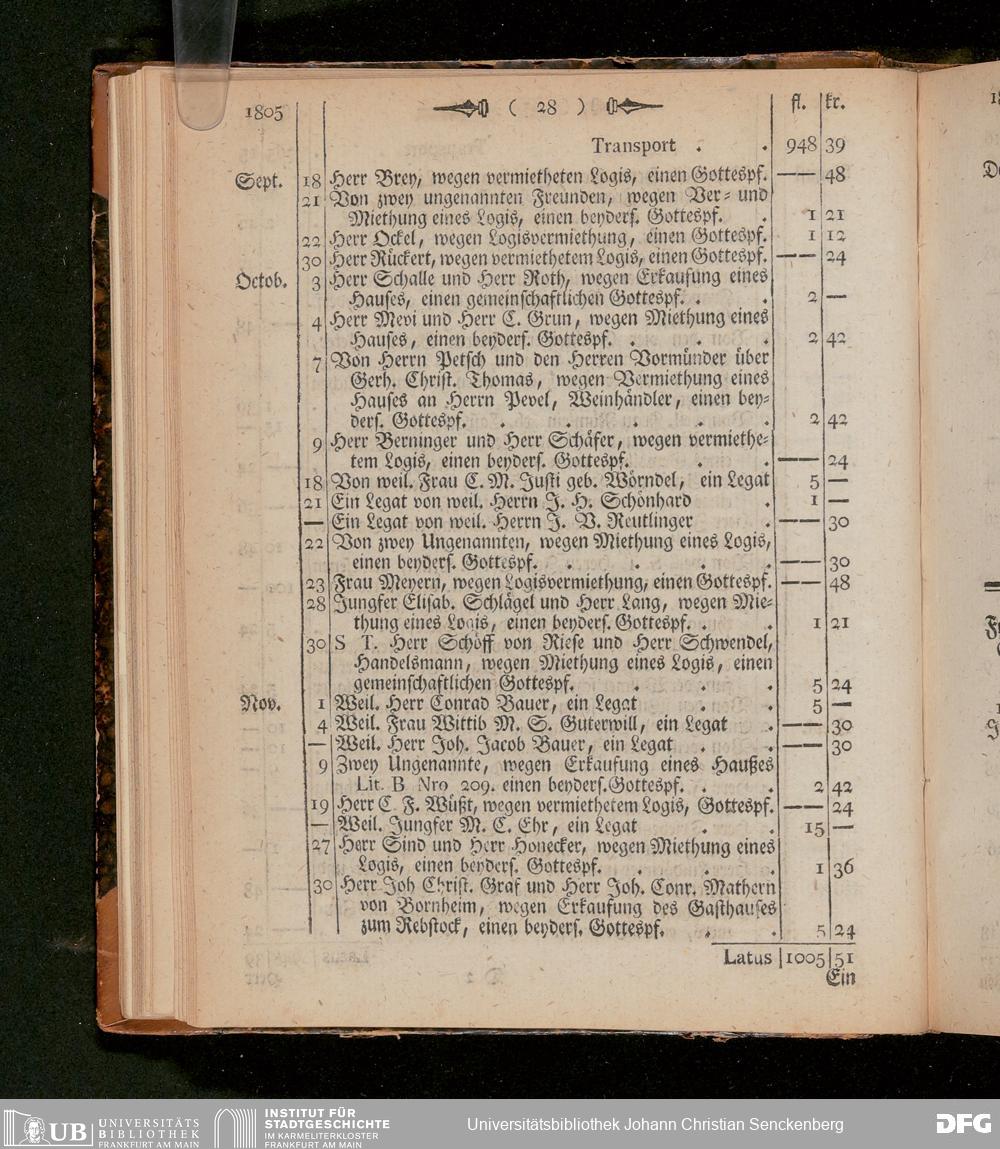 1805 ( 28 ) fl. kr.
Transport . . 948 39
Sept. 18 Herr Brey, wegen vermietheten Logis, einen Gottespf. — — 48
21 Von zwey ungenannten Freunden, wegen Ver- und
Miethung eines Logis, einen beyders. Gottespf. . 1 21
22 Herr Ockel, wegen Logisvermiethung, einen Gottespf. 1 12
30 Herr Rückert, wegen vermiethetem Logis, einen Gottespf. — — 24
Octob. 3 Herr Schalle und Herr Roth, wegen Erkaufung eines
Hauses, einen gemeinschaftlichen Gottespf. . . 2 —
4 Herr Mevi und Herr C. Grun, wegen Miethung eines
Hauses, einen beyders. Gottespf. . . . 2 42
7 Von Herrn Petsch und den Herren Vormünder über
Gerh. Christ. Thomas, wegen Vermiethung eines
Hauses an Herrn Pevel, Weinhändler, einen bey-
ders. Gottespf. . . . . . 2 42
9 Herr Berninger und Herr Schäfer, wegen vermiethe-
tem Logis, einen beyders. Gottespf. . . — — 24
18 Von weil. Frau C. M. Justi geb. Wörndel, ein Legat 5 —
21 Ein Legat von weil. Herrn J. H. Schönhard . 1 —
— Ein Legat von weil. Herrn J. V. Reutlinger . — — 30
22 Von zwey Ungenannten, wegen Miethung eines Logis,
einen beyders. Gottespf. . . . . — — 30
23 Frau Meyern, wegen Logisvermiethung, einen Gottespf. — — 48
28 Jungfer Elisab. Schlägel und Herr Lang, wegen Mie-
thung eines Logis, einen beyders. Gottespf. . . 1 21
30 S T. Herr Schöff von Riese und Herr Schwendel,
Handelsmann, wegen Miethung eines Logis, einen
gemeinschaftlichen Gottespf. . . . 5 24
Nov. 1 Weil. Herr Conrad Bauer, ein Legat . . 5 —
4 Weil. Frau Wittib M. S. Guterwill, ein Legat . — — 30
— Weil. Herr Joh. Jacob Bauer, ein Legat . . — — 30
9 Zwey Ungenannte, wegen Erkaufung eines Haußes
Lit. B Nro 209. einen beyders. Gottespf. . . 2 42
19 Herr C. F. Wüßt, wegen vermiethetem Logis, Gottespf. — — 24
— Weil. Jungfer M. C. Ehr, ein Legat . . 15 —
27 Herr Sind und Herr Honecker, wegen Miethung eines
Logis, einen beyders. Gottespf. . . . 1 36
30 Herr Joh Christ. Graf und Herr Joh. Conr. Mathern
von Bornheim, wegen Erkaufung des Gasthauses
zum Rebstock, einen beyders. Gottespf. . . 5 24
Latus 1005 51
Ein
UB UNIVERSITÄTS
BIBLIOTHEK
FRANKFURT AM MAIN
INSTITUT FÜR
STADTGESCHICHTE
IM KARMELITERKLOSTER
FRANKFURT AM MAIN
Universitätsbibliothek Johann Christian Senckenberg
DFG